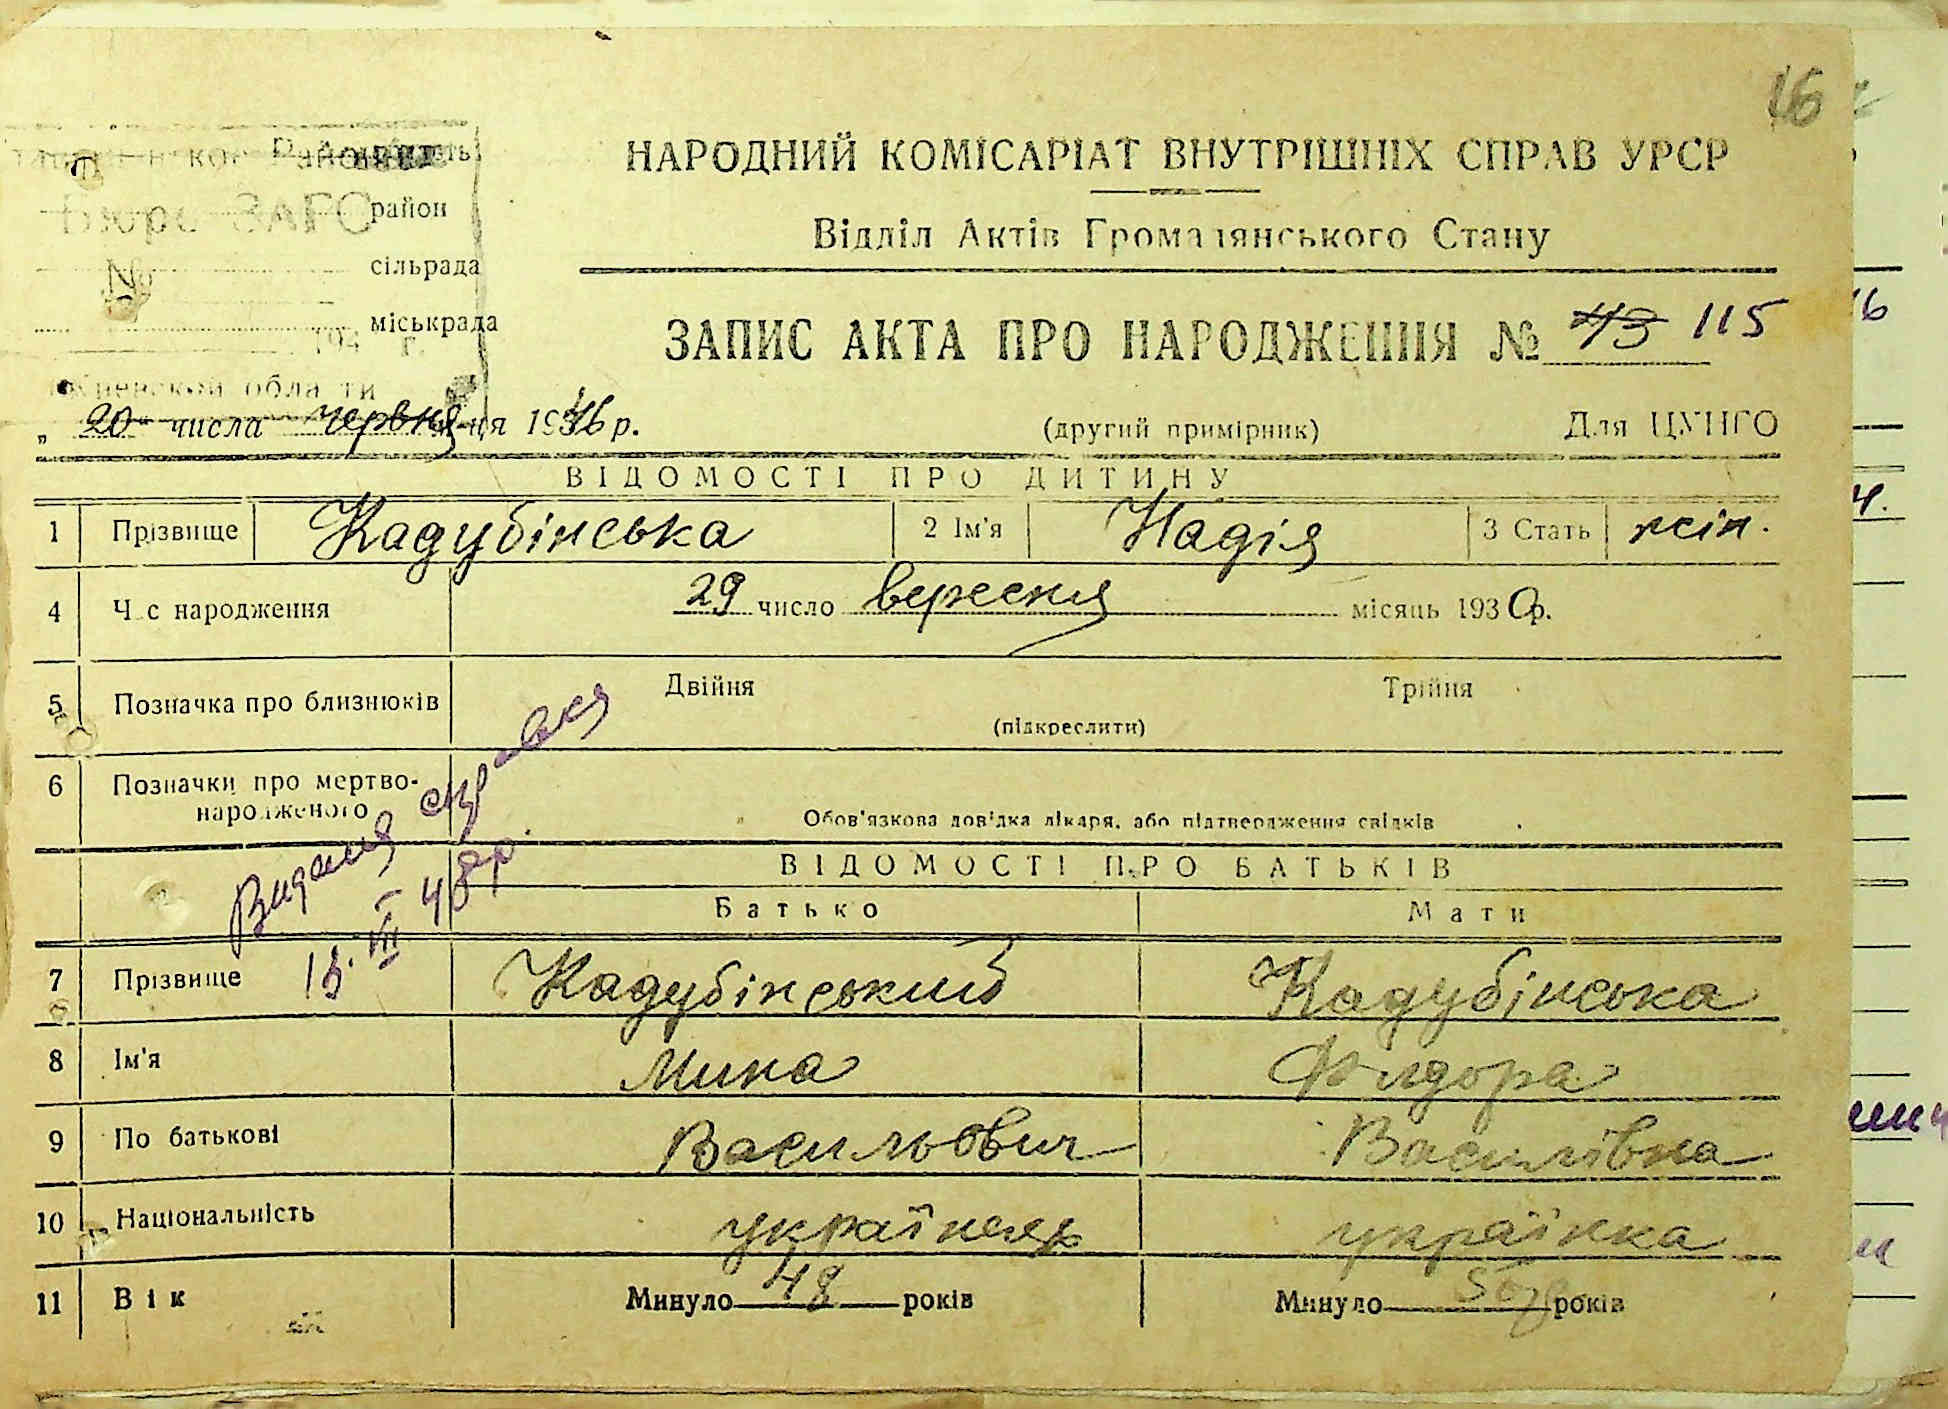 16
область
район
Бюро ЗАГС
сільрада
№
міськрада
194 г.
НАРОДНИЙ КОМІСАРІАТ ВНУТРІШНІХ СПРАВ УРСР
Відділ Актів Громадянського Стану
ЗАПИС АКТА ПРО НАРОДЖЕННЯ № 43 115
„ 20 " числа червня -ня 1946 р.
(другий примірник)
Для ЦУНГО
ВІДОМОСТІ ПРО ДИТИНУ
1 Прізвище Кадубінська 2 Ім'я Надія 3 Стать жін.
4 Час народження 29 число вересня місяць 1930 р.
5 Позначка про близнюків Двійня Трійня
(підкреслити)
6 Позначки про мертво-
народженого
Обов'язкова довідка лікаря, або підтвердження свідків
Видана справка
13. VIII 48р.
ВІДОМОСТІ ПРО БАТЬКІВ
Батько Мати
7 Прізвище Кадубінський Кадубінська
8 Ім'я Мина
9 По батькові Васильович Василівна
10 Національність українець українка
11 Вік Минуло 48 років Минуло років